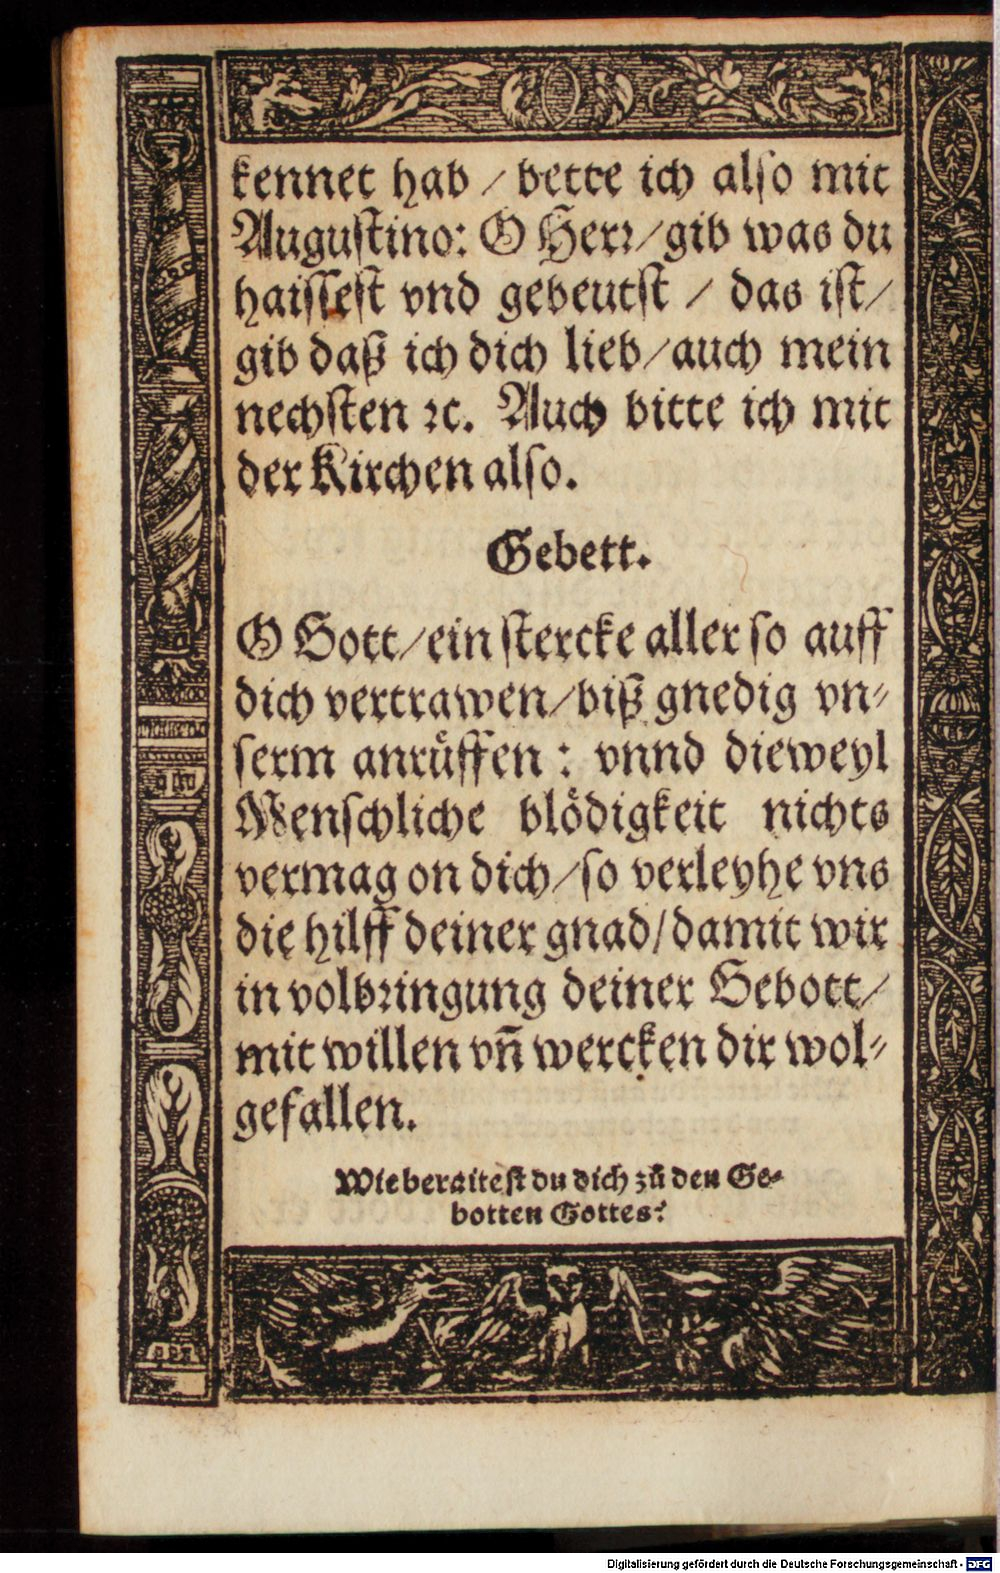 kennet hab / bette ich also mit
Augustino: O Herr / gib was du
haissest vnd gebeutst / das ist /
gib daß ich dich lieb / auch mein
nechsten ꝛc. Auch bitte ich mit
der Kirchen also.
Gebett.
O Gott / ein stercke aller so auff
dich vertrawen / biß gnedig vn-
serm anrůffen : vnnd dieweyl
Menschliche blödigkeit nichts
vermag on dich / so verleyhe vns
die hilff deiner gnad / damit wir
in volbringung deiner Gebott /
mit willen vñ wercken dir wol-
gefallen.
Wie beraitest du dich zů den Ge-
botten Gottes?
Digitalisierung gefördert durch die Deutsche Forschungsgemeinschaft - DFG